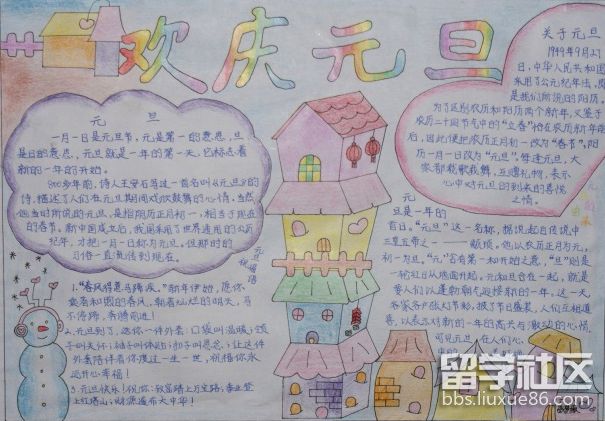 欢庆元旦
元 旦
一月一日是元旦节,元是第一的意思,旦
是日的意思,元旦就是一年的第一天,它标志着
新的一年的开始。
800多年前,诗人王安石写过一首名叫《元旦》的
诗,描述了人们在元旦期间欢欣鼓舞的心情,当然
他当时所说的元旦,是指阴历正月初一,相当于现在
的春节。新中国成立后,我国采用了世界通用的公历
纪年,才把一月一日称为元旦。但那时的
习俗一直流传到现在。
元旦祝福语
1."春风得意马蹄疾。"新年伊始,愿你
乘着和煦的春风,朝着灿烂的明天,马
不停蹄,奔腾前进!
2.元旦到了,送你一件外套:口袋叫温暖;领
子叫关怀;袖子叫体贴;扣子叫思念;让这件
外套陪伴着你度过一生一世,祝福你永
远开心幸福!
3.元旦快乐!祝你:致富踏上万宝路;事业登
上红塔山;财源遍布大中华!
关于元旦
1949年9月27
日,中华人民共和国
采用了公元纪年法,
是我们所说的阳历,
为了区别农历和阳历两个新年,又鉴于
农历二十四节气中的"立春"恰在农历新年前
后,因此便把农历正月初一改为"春节",阳
历一月一日改为"元旦"。每逢元旦,大
家都载歌载舞,互赠礼物,表示
心中对元旦的到来的喜悦
之情。
元
旦是一年的
首日。"元旦"这一名称,据说起自传说中
三皇五帝之一——颛顼。他以农历正月为元,
初一为旦。"元"含有第一和开始之意,"旦"则是
一轮红日从地面升起。元和旦合在一起,就是
要人们以蓬勃朝气迎接新的一年。这一天
家家户户张灯节彩,披了节日盛装,人们互相道
喜,以表示对新的一年的高兴与激动的心情。
可见元旦,在人们心
中的
留学社区
bbs.liuxue86.com